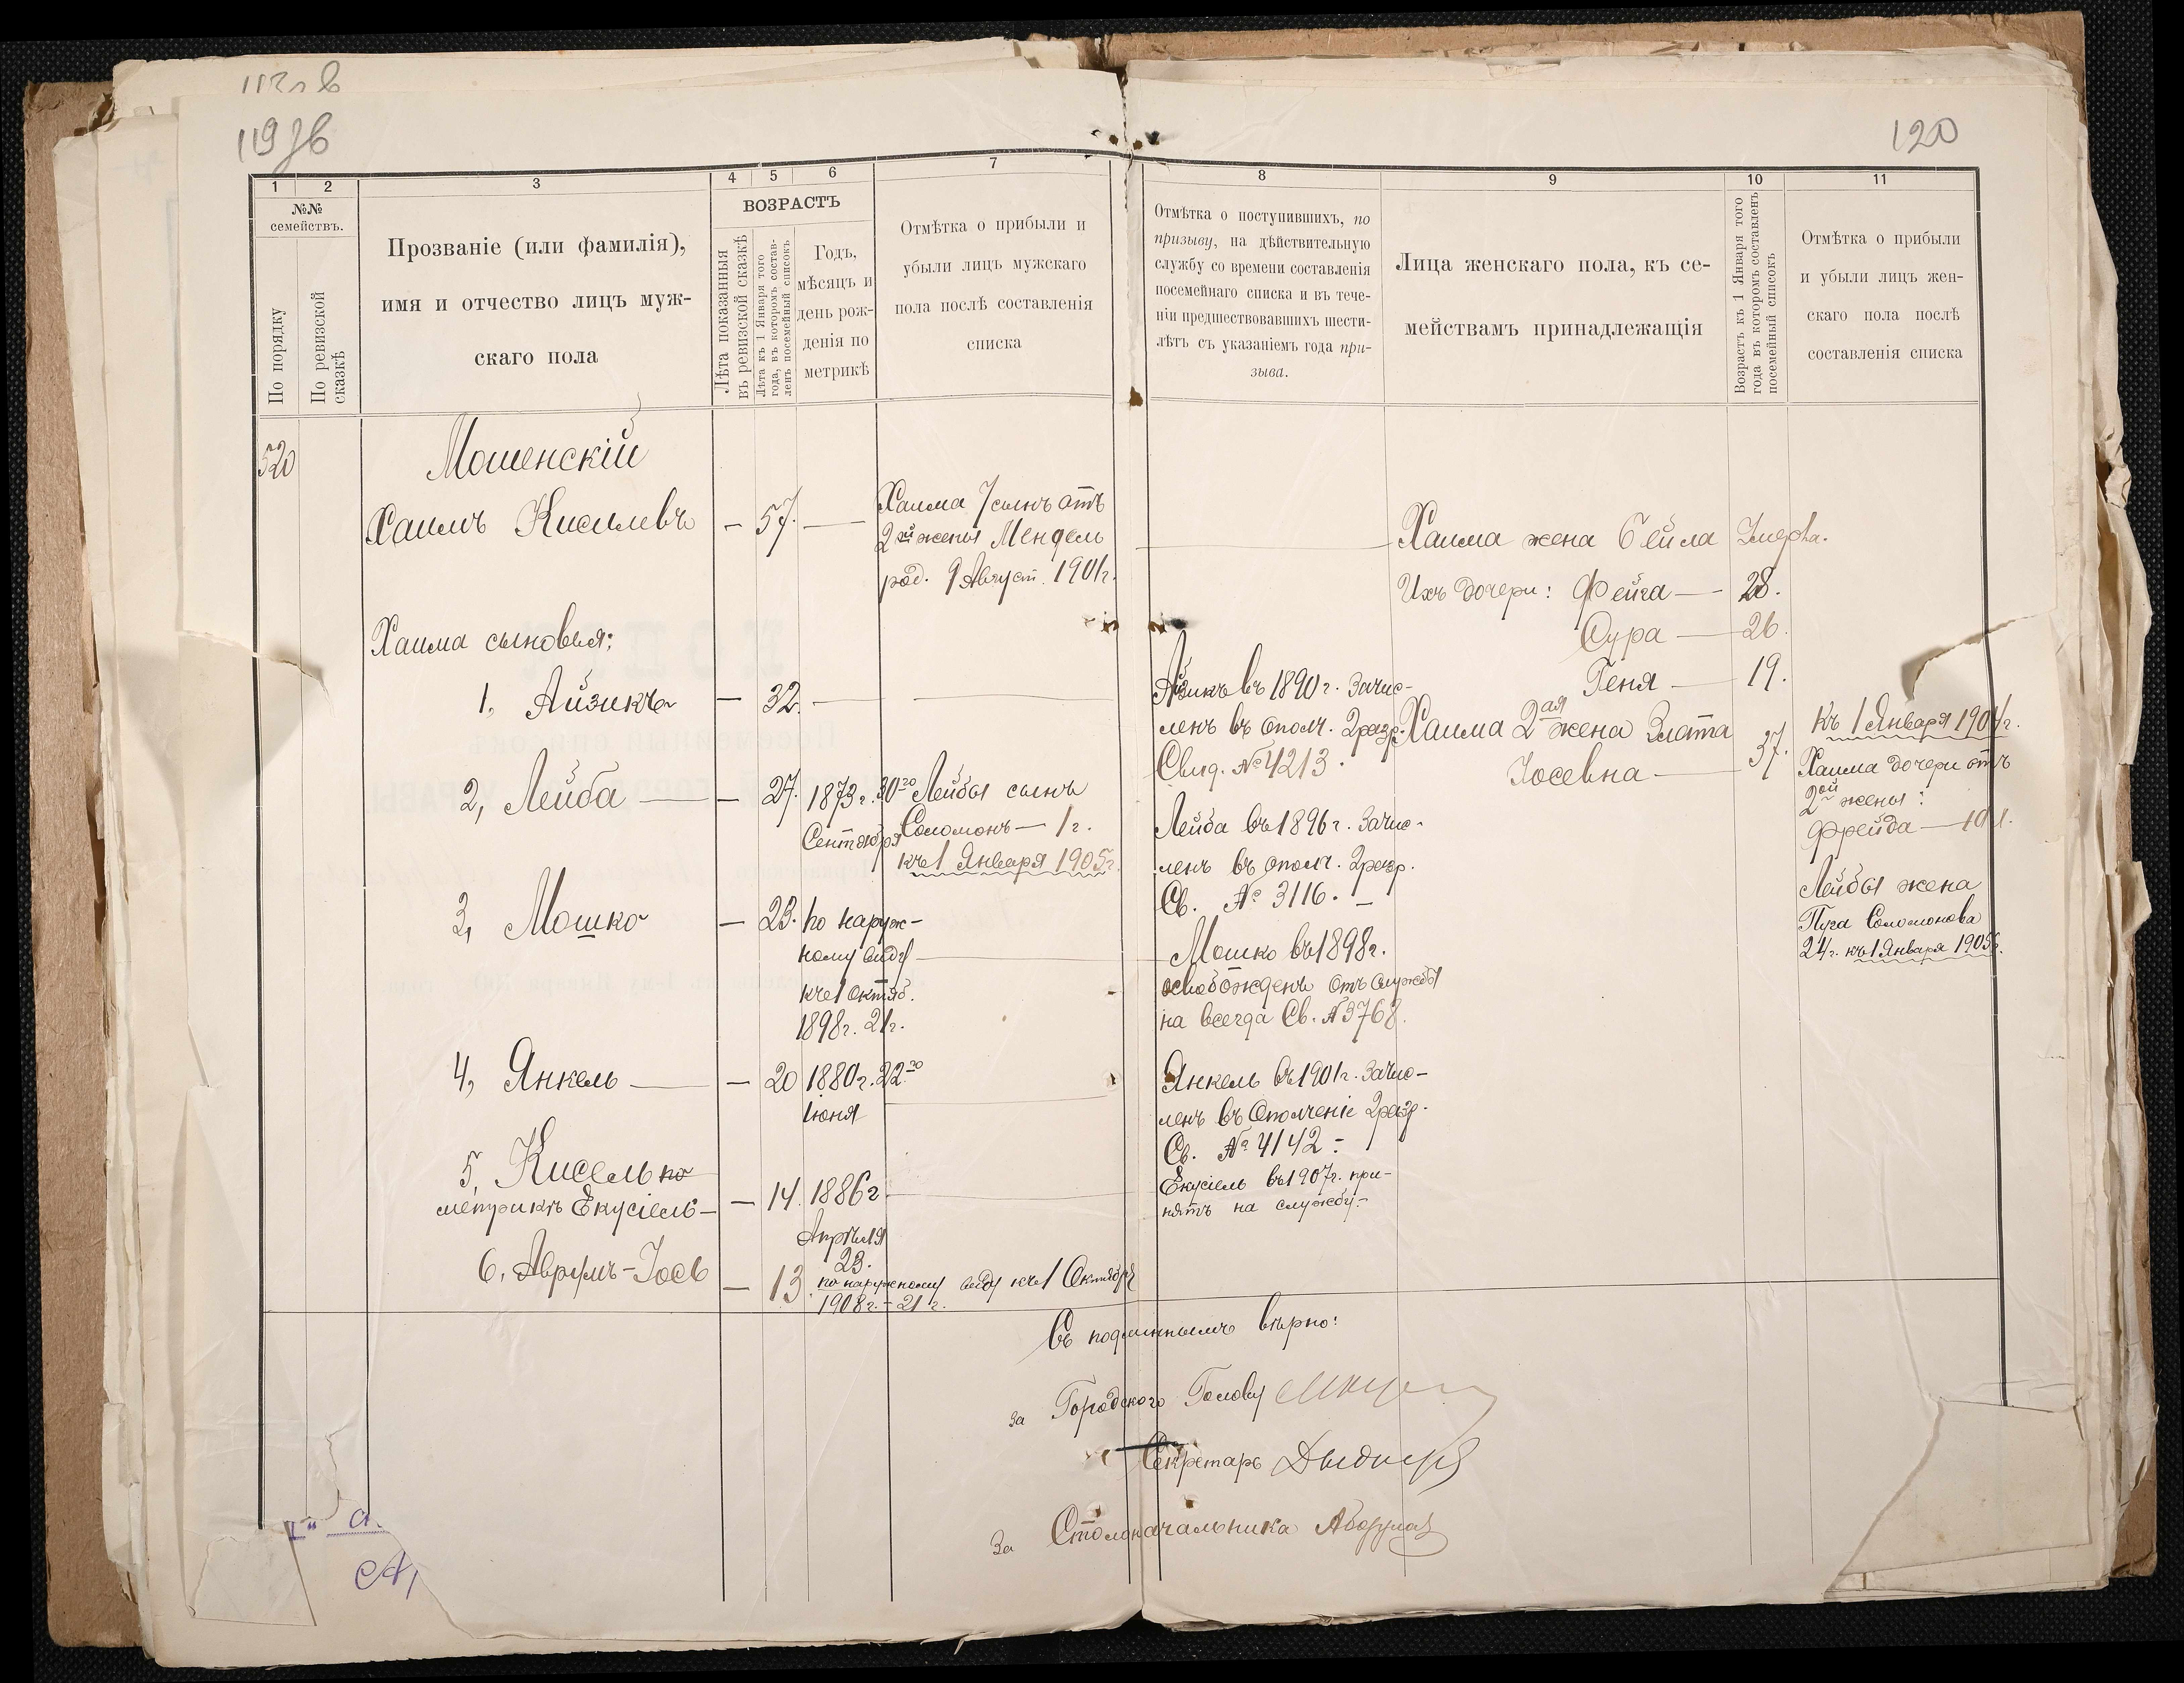 119 об
120
1
2
3
4
5
6
7
8
9
10
11
№№
семействъ.
По порядку
По ревизской
сказкѣ
Прозваніе (или фамилія),
имя и отчество лицъ муж-
скаго пола
ВОЗРАСТЪ
Лѣта показанныя
въ ревизской сказкѣ
Лѣта къ 1 Января того
года, въ которомъ состав-
ленъ посемейный списокъ
Годъ,
мѣсяцъ и
день рож-
денія по
метрикѣ
Отмѣтка о прибыли и
убыли лицъ мужскаго
пола послѣ составленія
списка
Отмѣтка о поступившихъ, по
призыву, на дѣйствительную
службу со времени составленія
посемейнаго списка и въ тече-
ніи предшествовавшихъ шести-
лѣтъ съ указаніемъ года при-
зыва.
Лица женскаго пола, къ се-
мействамъ принадлежащія
Возрастъ къ 1 Января того
года въ которомъ составленъ
посемейный списокъ
Отмѣтка о прибыли
и убыли лицъ жен-
скаго пола послѣ
составленія списка
520
Мошенскій
Хаимъ Киселевъ — 57. —
Хаима сыновья:
1, Айзикъ — 32. —
2, Лейба — — 27. 1873 г. 30го
Сентября
3, Мошко — 23. по наруж-
ному виду
къ 1 Октяб.
1898 г. 21 г.
4, Янкель — — 20 1880 г. 22го
Іюня
5, Кисель по
метрикѣ Екусіель — — 14. 1886 г
Апрѣля
23.
6, Аврумъ-Іось — 13. по наружному виду къ 1 Октября
1908 г. - 21 г.
Хаима сынъ отъ
2й жены Мендель
род. 9 Август. 1901 г.
Лейбы сынъ
Соломонъ — 1 г.
къ 1 Января 1905 г.
Айзикъ въ 1890 г. зачис-
ленъ въ ополч. 2 разр.
Свид. № 4213.
Лейба въ 1896 г. зачис-
ленъ въ ополч. 2 разр.
Св. № 3116. —
Мошко въ 1898 г.
освобожденъ отъ службы
на всегда Св. № 3768.
Янкель въ 1901 г. зачис-
ленъ въ Ополченіе 2 разр.
Св. № 4142. -
Екусіель въ 1907 г. при-
нятъ на службу. -
Хаима жена Бейла Умерла.
Ихъ дочери: Фейга — 28.
Сура — 26.
Геня — 19.
Хаима 2ая жена Злата
Іосевна — 37.
къ 1 Января 1904 г.
Хаима дочери отъ
2ой жены:
Фрейда —
Лейбы жена
Соломонова
24 г. къ 1 Января 1905 г.
Съ подлиннымъ вѣрно:
за Городского Голову
Секретарь
За Столоначальника